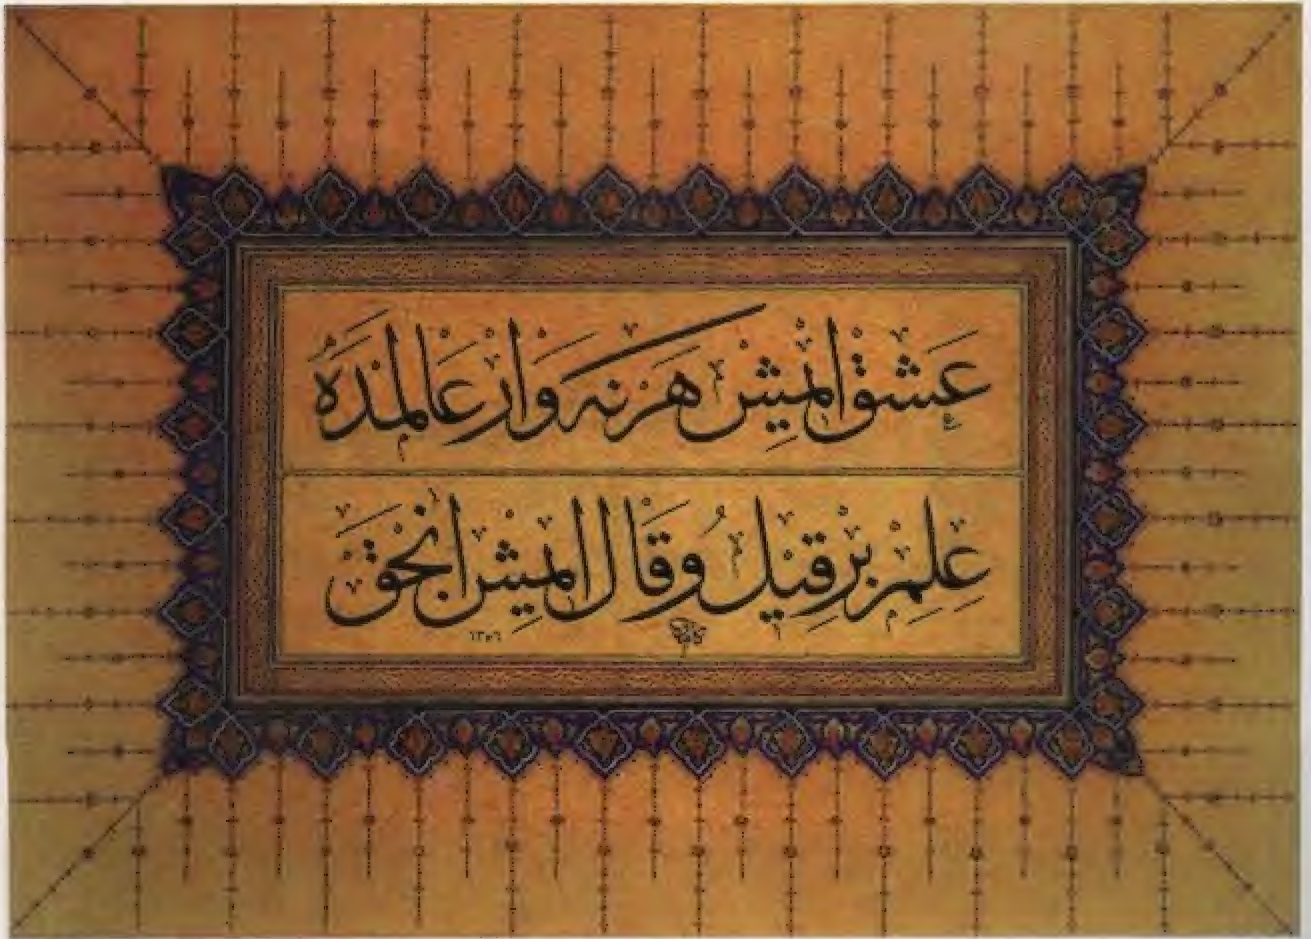 عشق ایمش هر نه وار عالمده
علم بر قیل و قال ایمش انجق
١٣٥٦